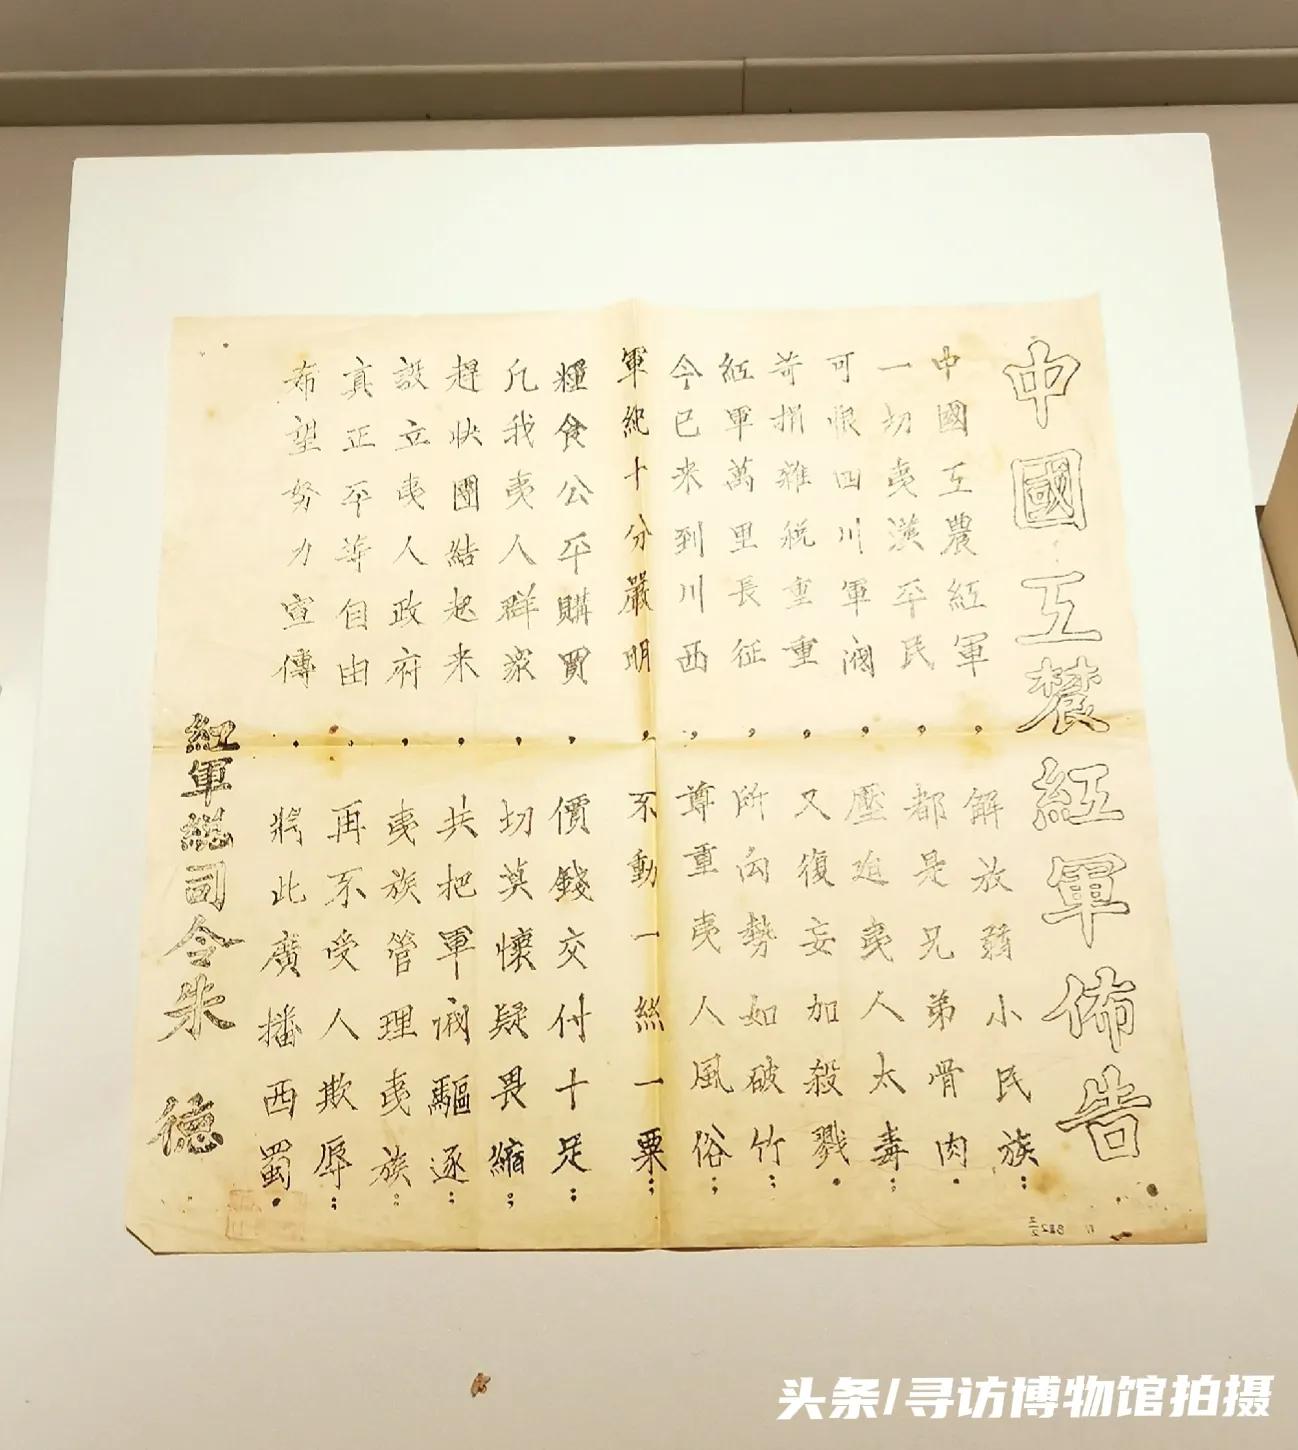 中國工農紅軍佈告
中國工農紅軍，解放弱小民族；
一切夷漢平民，都是兄弟骨肉。
可恨四川軍阀，壓迫夷人太毒；
苛捐雜税重重，又復妄加殺戮。
紅軍萬里長征，所向勢如破竹；
今已来到川西，尊重夷人風俗；
軍紀十分嚴明，不動一絲一粟；
糧食公平購買，價錢交付十足；
凡我夷人群家，切莫懷疑畏縮；
趕快團結起来，共把軍阀驅逐；
設立夷人政府，夷族管理夷族；
真正平等自由，再不受人欺辱；
希望努力宣傳，將此廣播西蜀。
紅軍総司令朱德
头条/寻访博物馆拍摄